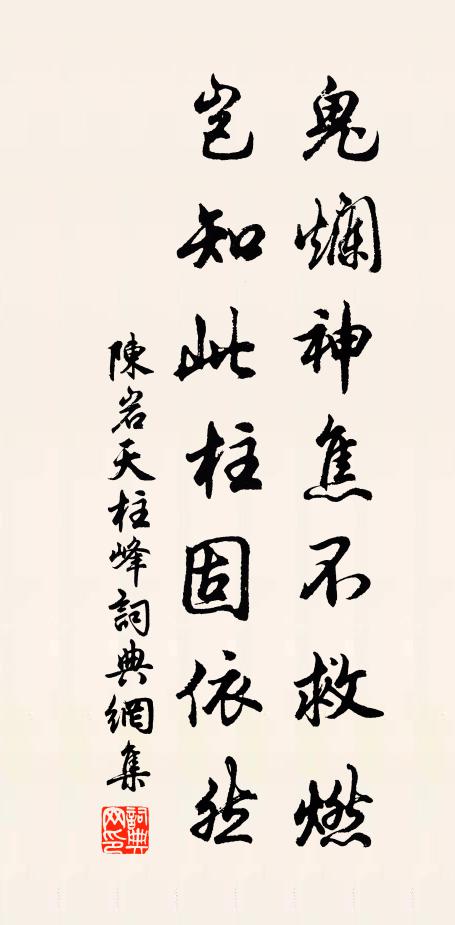 鬼爛神焦不救燃
豈知此柱固依然
陳岩天柱峰詞典網集
詞典网印